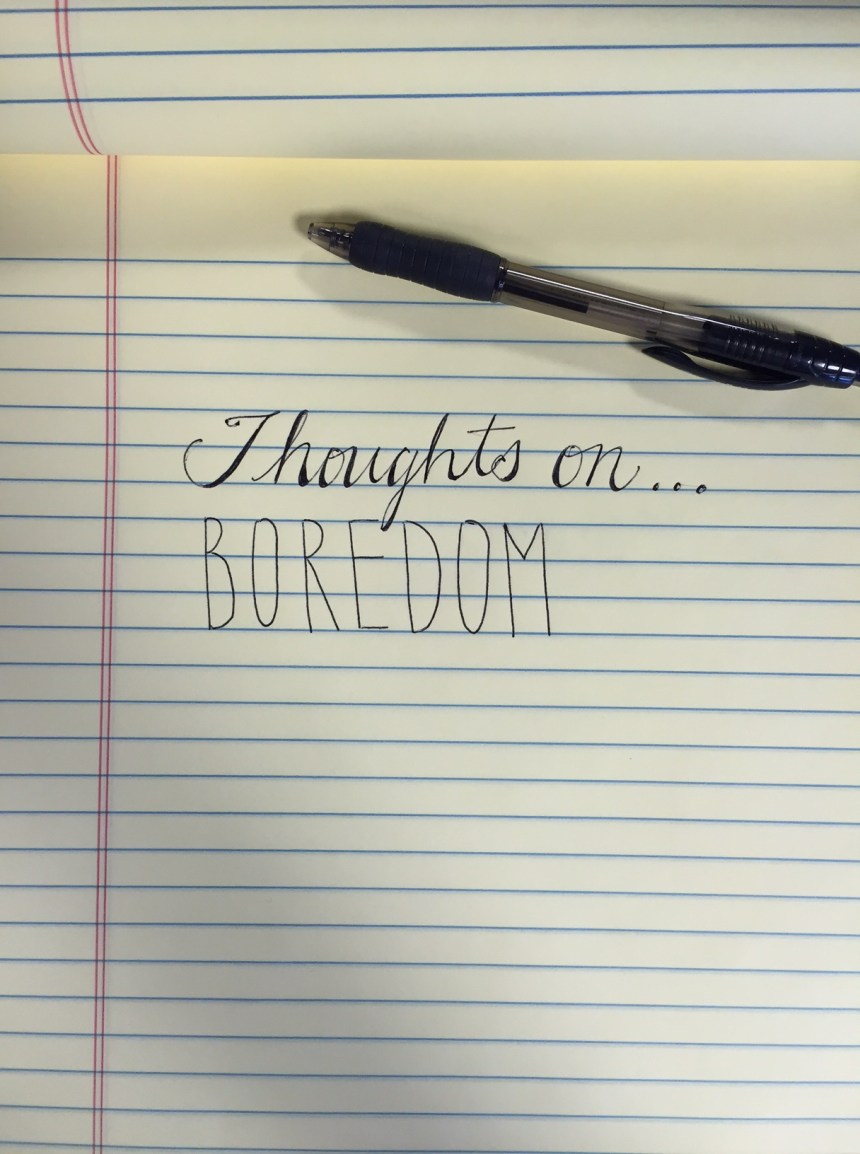 Thoughts on...
BOREDOM